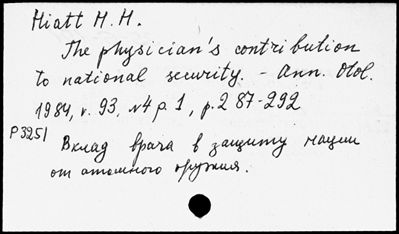 Hiatt H. H.
The physician's contribution
to national security. - Ann. Otol.
1984, v. 93, N4 p. 1, p. 287-292
P3251
Вклад врача в защиту нации
от атомного оружия.